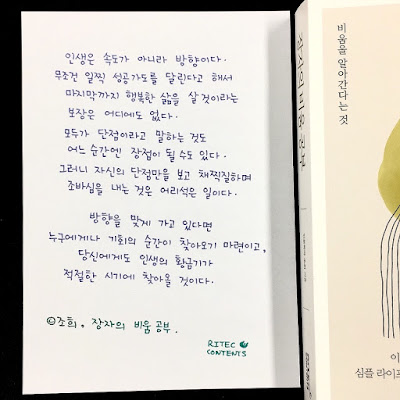 인생은 속도가 아니라 방향이다.
무조건 일찍 성공가도를 달린다고 해서
마지막까지 행복한 삶을 살 것이라는
보장은 어디에도 없다.
모두가 단점이라고 말하는 것도
어느 순간엔 장점이 될 수도 있다.
그러니 자신의 단점만을 보고 채찍질하며
조바심을 내는 것은 어리석은 일이다.
방향을 맞게 가고 있다면
누구에게나 기회의 순간이 찾아오기 마련이고,
당신에게도 인생의 황금기가
적절한 시기에 찾아올 것이다.
©조희, 장자의 비움 공부.
RITEC
CONTENTS
비움을 알아간다는 것
장자의 비움 공부
이
심플 라이프